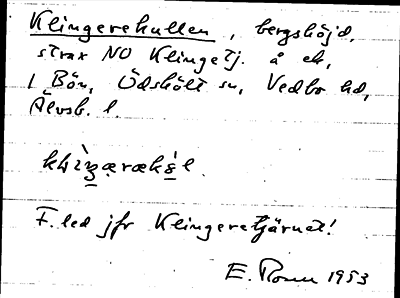 Klingerekullen, bergshöjd,
strax NO Klingetj. å ek,
/ Bön, Ödskölt sn, Vedbo hd,
Älvsb. l.
F. led jfr Klingeretjärnet!
E. 1953